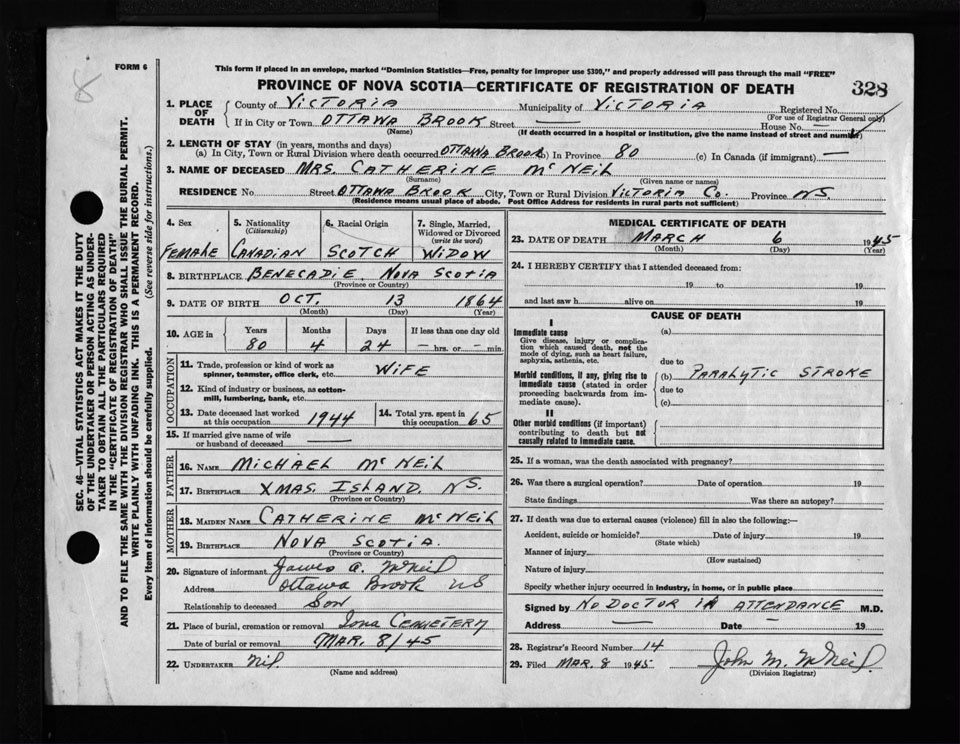 8
FORM 6
This form if placed in an envelope, marked "Dominion Statistics—Free, penalty for improper use $300," and properly addressed will pass through the mail "FREE"
PROVINCE OF NOVA SCOTIA—CERTIFICATE OF REGISTRATION OF DEATH
328
1. PLACE OF DEATH
County of VICTORIA Municipality of VICTORIA Registered No.
(For use of Registrar General only)
If in City or Town OTTAWA BROOK Street — House No. —
(Name) (If death occurred in a hospital or institution, give the name instead of street and number)
2. LENGTH OF STAY (in years, months and days)
(a) In City, Town or Rural Division where death occurred OTTAWA BROOK (b) In Province 80 (c) In Canada (if immigrant) —
3. NAME OF DECEASED MRS. CATHERINE McNEIL
(Surname) (Given name or names)
RESIDENCE No. Street OTTAWA BROOK City, Town or Rural Division VICTORIA Co. Province N.S.
(Residence means usual place of abode. Post Office Address for residents in rural parts not sufficient)
4. Sex
FEMALE
5. Nationality
(Citizenship)
CANADIAN
6. Racial Origin
SCOTCH
7. Single, Married, Widowed or Divorced
(write the word)
WIDOW
8. BIRTHPLACE BENECADIE NOVA SCOTIA
(Province or Country)
9. DATE OF BIRTH OCT. 13 1864
(Month) (Day) (Year)
10. AGE in
Years Months Days If less than one day old
80 4 24 — hrs. or — min.
OCCUPATION
11. Trade, profession or kind of work as spinner, teamster, office clerk, etc. WIFE
12. Kind of industry or business, as cotton-mill, lumbering, bank, etc.
13. Date deceased last worked at this occupation 1944
14. Total yrs. spent in this occupation 65
15. If married give name of wife or husband of deceased
FATHER
16. NAME MICHAEL McNEIL
17. BIRTHPLACE XMAS. ISLAND. N.S.
(Province or Country)
MOTHER
18. MAIDEN NAME CATHERINE McNEIL
19. BIRTHPLACE NOVA SCOTIA.
(Province or Country)
20. Signature of informant James A. McNeil
Address Ottawa Brook NS
Relationship to deceased Son
21. Place of burial, cremation or removal IONA CEMETERY
Date of burial or removal MAR. 8/45
22. UNDERTAKER Nil.
(Name and address)
MEDICAL CERTIFICATE OF DEATH
23. DATE OF DEATH MARCH 6 1945
(Month) (Day) (Year)
24. I HEREBY CERTIFY that I attended deceased from:
19 to 19
and last saw h alive on 19
CAUSE OF DEATH
I
Immediate cause
Give disease, injury or complication which caused death, not the mode of dying, such as heart failure, asphyxia, asthenia, etc.
(a)
due to
Morbid conditions, if any, giving rise to immediate cause (stated in order proceeding backwards from immediate cause).
(b) PARALYTIC STROKE
due to
(c)
II
Other morbid conditions (if important) contributing to death but not causally related to immediate cause.
25. If a woman, was the death associated with pregnancy?
26. Was there a surgical operation? Date of operation 19
State findings Was there an autopsy?
27. If death was due to external causes (violence) fill in also the following:—
Accident, suicide or homicide? Date of injury 19
(State which)
Manner of injury
(How sustained)
Nature of injury
Specify whether injury occurred in industry, in home, or in public place
Signed by NO DOCTOR IN ATTENDANCE M.D.
Address — Date — 19
28. Registrar's Record Number 14
29. Filed MAR. 8 1945 John M. McNeil.
(Division Registrar)
SEC. 46—VITAL STATISTICS ACT MAKES IT THE DUTY
OF THE UNDERTAKER OR PERSON ACTING AS UNDER-
TAKER TO OBTAIN ALL THE PARTICULARS REQUIRED
IN THE "CERTIFICATE OF REGISTRATION OF DEATH"
AND TO FILE THE SAME WITH THE DIVISION REGISTRAR WHO SHALL ISSUE THE BURIAL PERMIT.
WRITE PLAINLY WITH UNFADING INK. THIS IS A PERMANENT RECORD.
Every item of information should be carefully supplied. (See reverse side for instructions.)